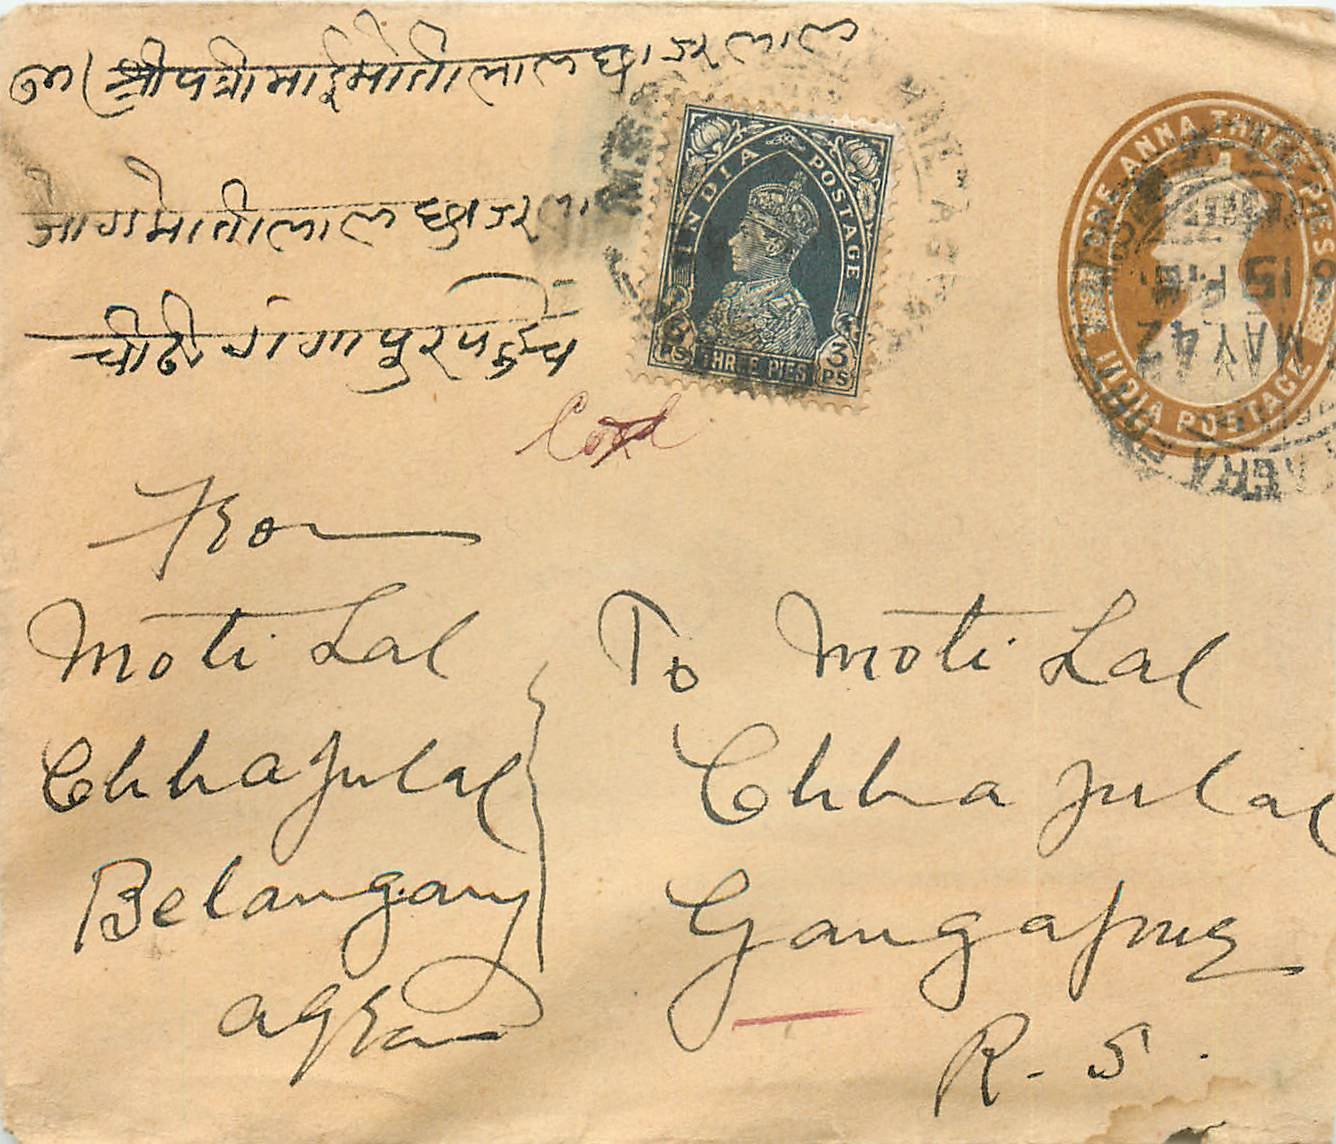 श्री पत्री भाई मोतीलाल छाजुलाल
जोग मोतीलाल छाजुला
चीठी गंगापुर पहुँचे
INDIA POSTAGE
3 PS THREE PIES 3 PS
ONE ANNA THREE PIES
INDIA POSTAGE
15 MAY 42
AGRA
From
Moti Lal
Chhajulal
Belanganj
Agra
To Moti Lal
Chhajulal
Gangapur
R. S.